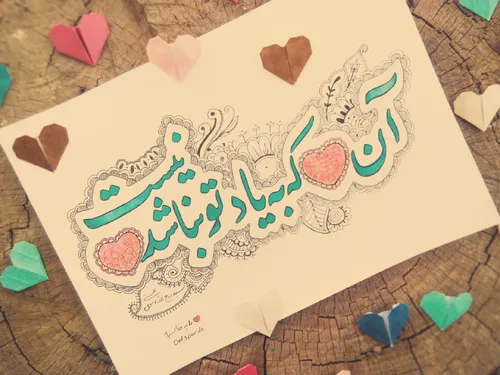 آن ❤ که به یاد تو نباشد ❤ نیست